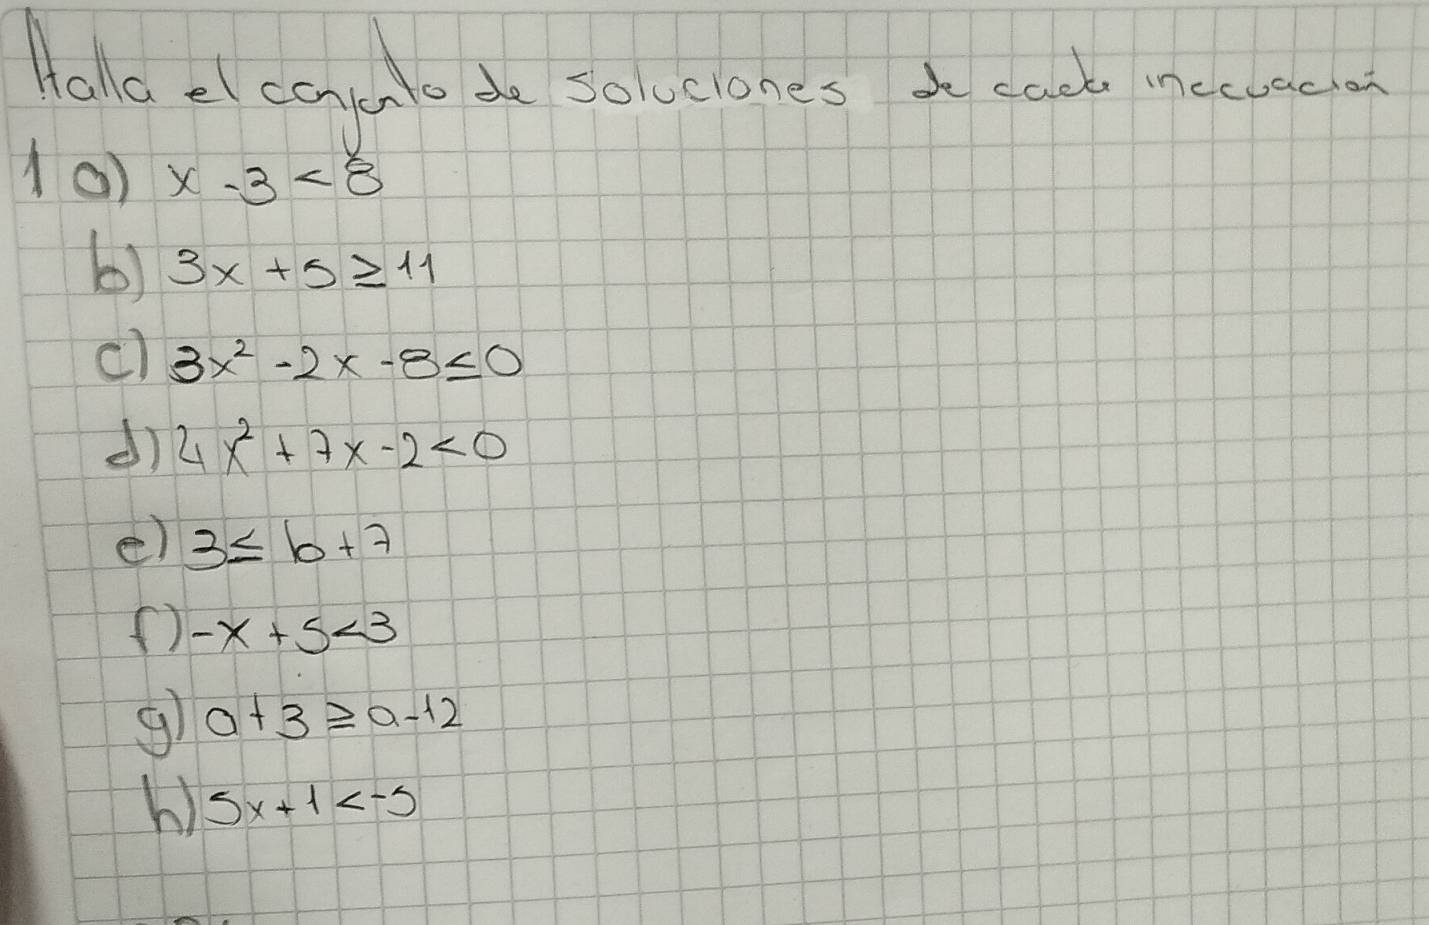 Halla el conjunto de soluciones de cada inecuación
1 a) x - 3 < 8
b) 3x + 5 ≥ 11
c) 3x² - 2x - 8 ≤ 0
d) 4x² + 7x - 2 < 0
e) 3 ≤ b + 7
f) -x + 5 < 3
g) a + 3 ≥ a - 12
h) 5x + 1 < -5